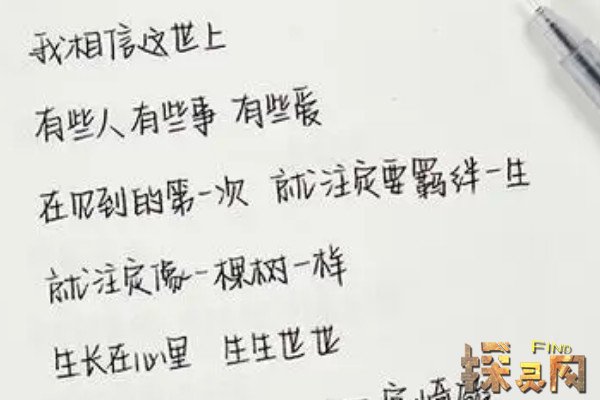 我相信这世上
有些人有些事 有些爱
在见到的第一次 就注定要羁绊一生
就注定像一棵树一样
生长在心里 生生世世
FIND
探灵网